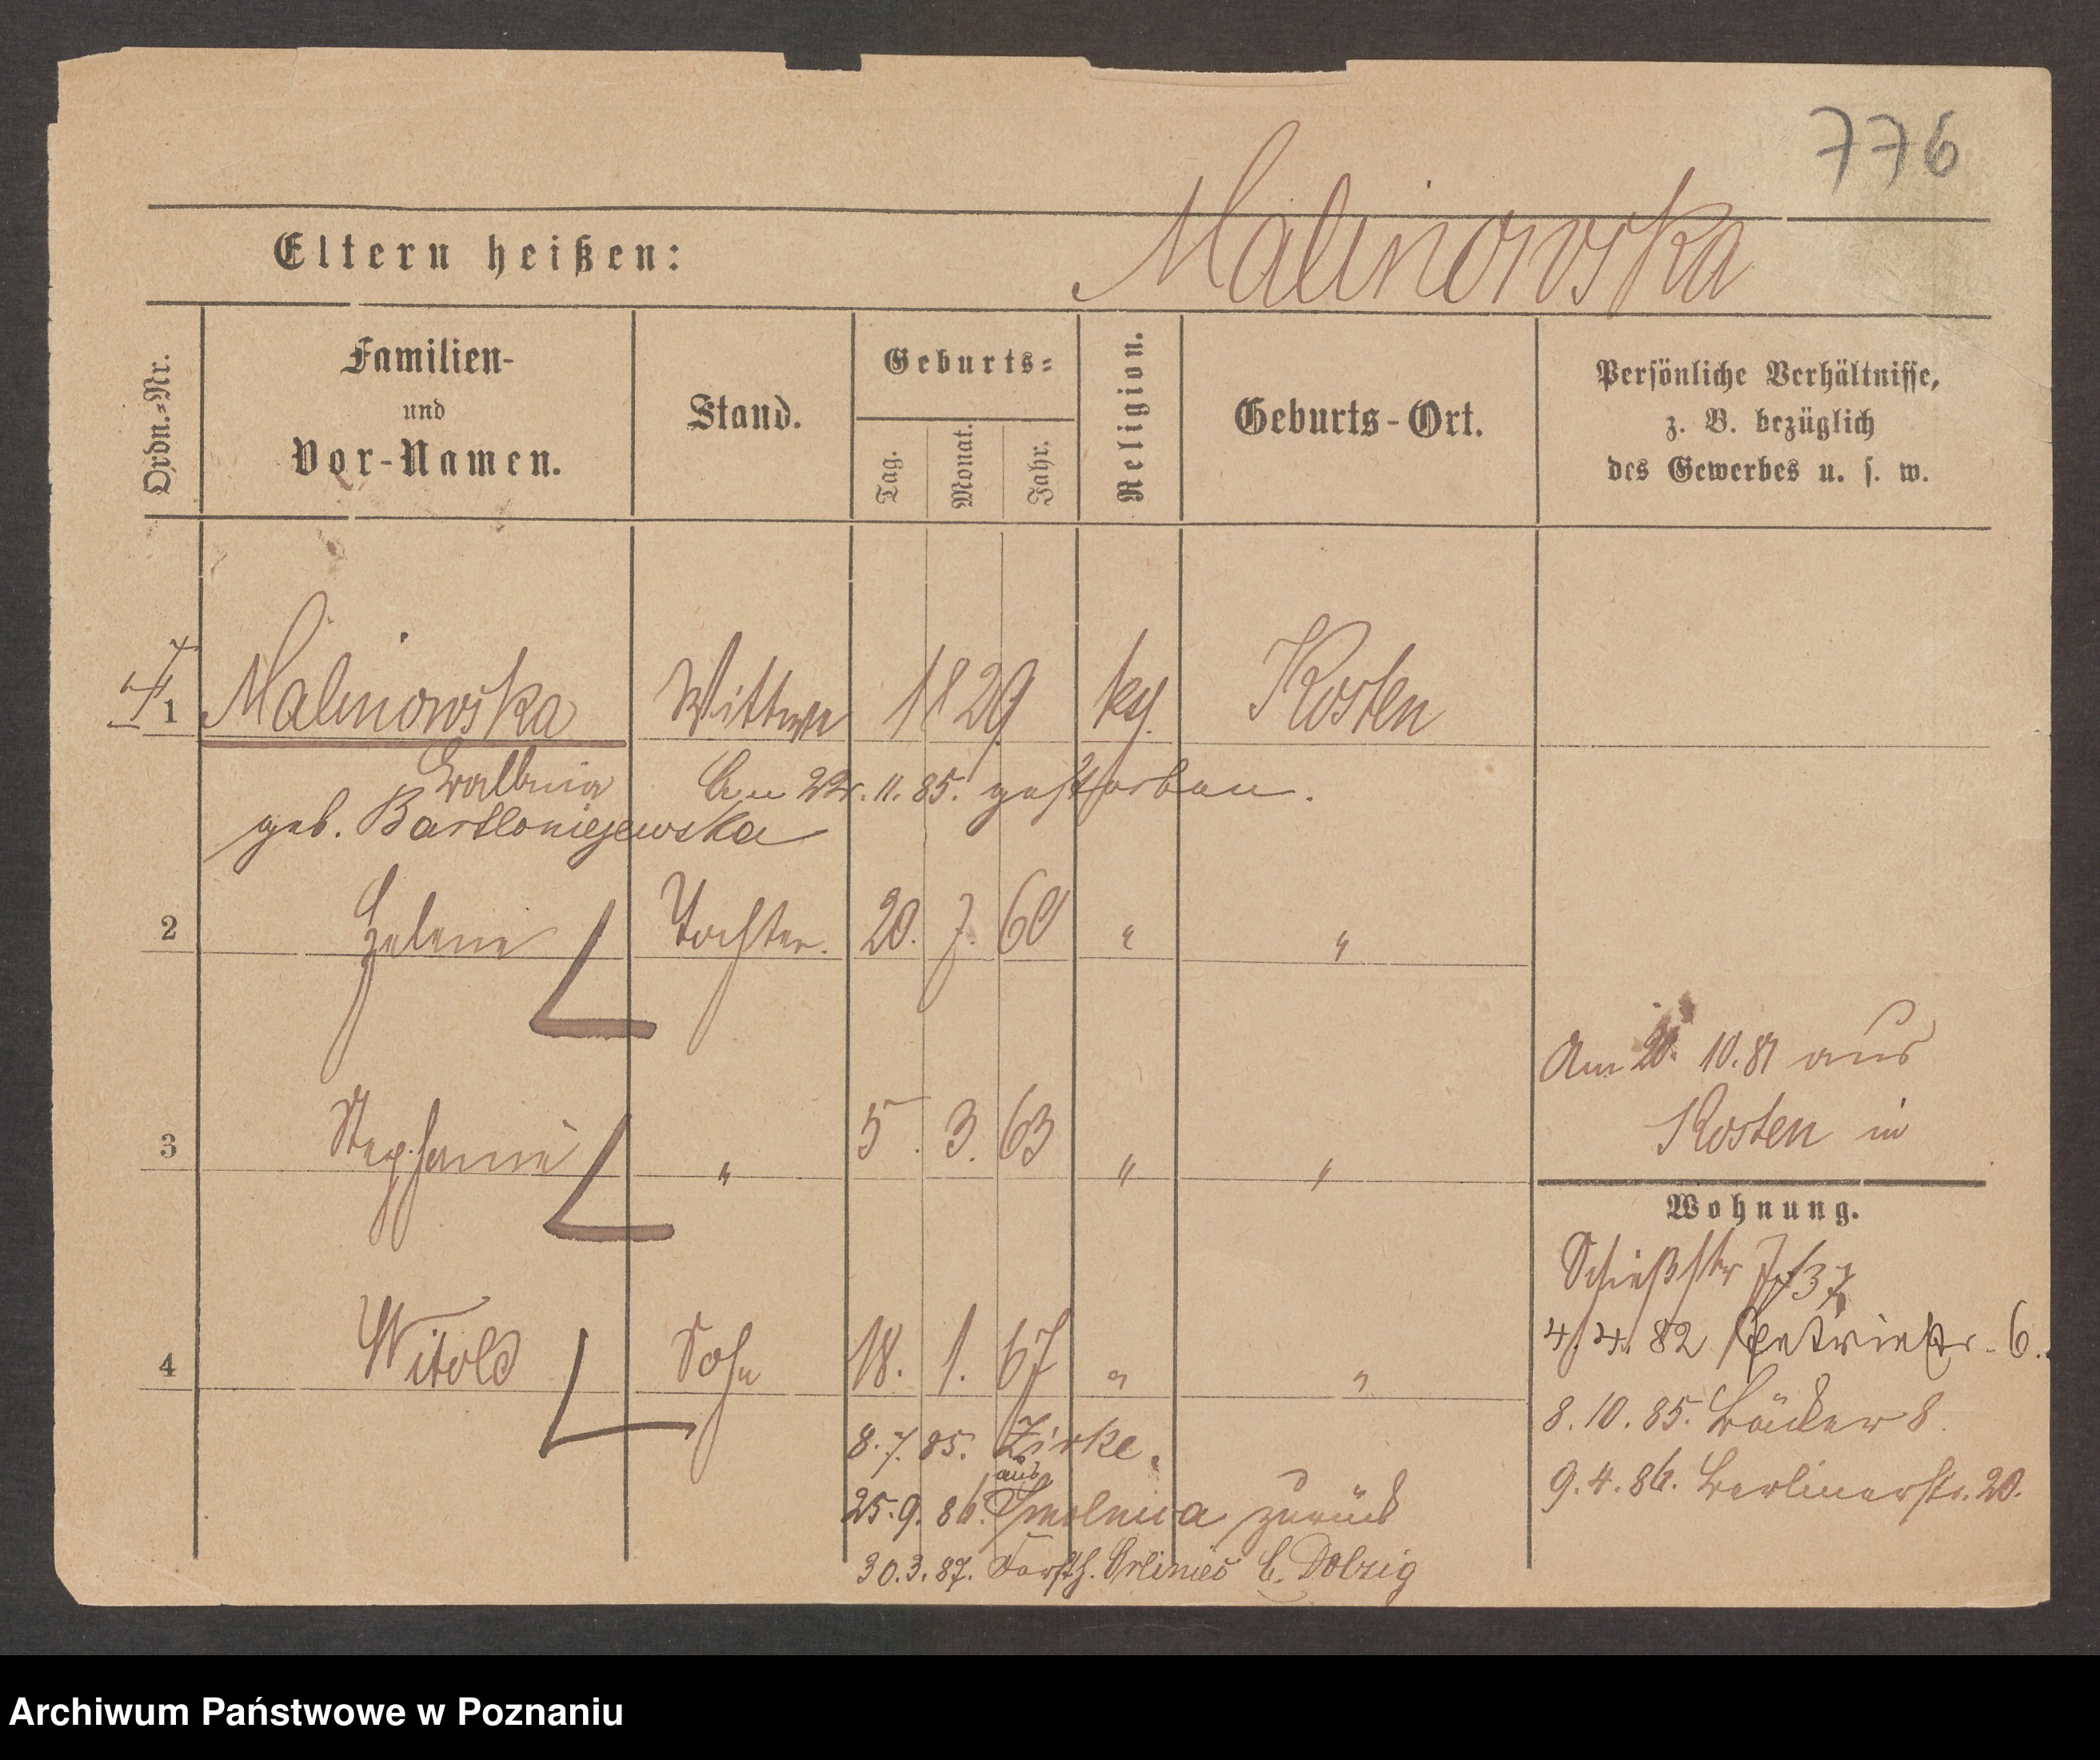 776
Eltern heißen: Malinowska
Ordn.-Nr.
Familien-
und
Vor-Namen.
Stand.
Geburts-
Tag. Monat. Jahr.
Religion.
Geburts-Ort.
Persönliche Verhältnisse,
z. B. bezüglich
des Gewerbes u. s. w.
1 Malinowska Wittwe 1829 Kosten
Am 22. 11. 85. gestorben.
geb.
2 Helene Tochter. 20. 7. 60 " "
Am 10. 81 aus
Kosten in
3 Stephanie " 5. 3. 63 " "
Wohnung.
Schießstr
4. 4. 82 Petristr. 6.
4 Witold Sohn 18. 1. 67 " "
8. 10. 85. Bäcker 8.
8. 7. 85. Zirke.
9. 4. 86. Berlinerstr. 20.
aus
25. 9. 86. zurück
30. 3. 87. Forsth. b. Dolzig
Archiwum Państwowe w Poznaniu